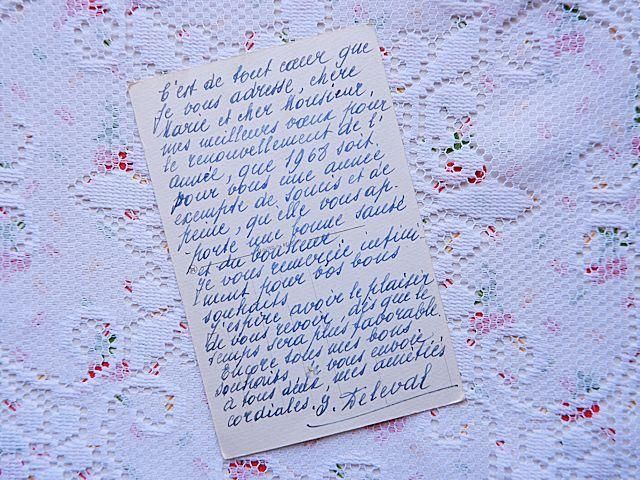 C'est de tout cœur que
je vous adresse, chère
Marie et cher Monsieur,
mes meilleurs vœux pour
le renouvellement de l'
année, que 1968 soit
pour vous une année
exempte de soucis et de
peine, qu'elle vous ap-
porte une bonne santé
et du bonheur.
Je vous remercie infini
ment pour vos bons
souhaits
J'espère avoir le plaisir
de vous revoir, dès que le
temps sera plus favorable.
Encore tous mes bons
souhaits, je vous envoie
à tous deux, mes amitiés
cordiales. y. Deleval